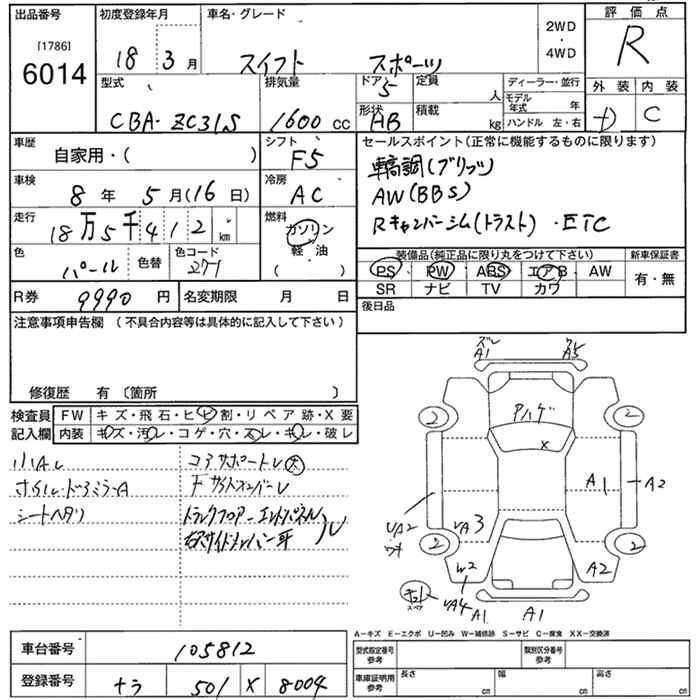 出品番号 初度登録年月 車名・グレード 2WD・4WD 評価点
[1786]
6014 18年 3月 スイフト スポーツ R
型式 排気量 ドア 定員 人 ディーラー・並行 外装 内装
CBA-ZC31S 1600cc 5 モデル年式 年 C
形状 積載 kg ハンドル 左・右
AB
車歴 シフト セールスポイント(正常に機能するものに限ります)
自家用・( ) F5 車高調(ブリッツ)
車検 冷房 AW(BBS)
8年 5月(16日) AC Rキャンバーシム(トラスト)・ETC
走行 燃料
18万5千412km ガソリン・軽・油( )
色 色替 色コード 装備品(純正品に限り丸をつけて下さい) 新車保証書
パール 271 PS PW ABS エアB AW 有・無
SR ナビ TV カワ
R券 9990円 名変期限 月 日 後日品
注意事項申告欄(不具合内容等は具体的に記入して下さい)
修復歴 有〔箇所 〕
検査員記入欄 FW キズ・飛石・ヒビ割・リペア跡・X要
内装 キズ・汚レ・コゲ・穴・スレ・キレ・破レ
小Aレ コアサポートレ 大
ドアミラーA Fサイドメンバーレ
シートヘタリ トランクフロアーエンドパネル
右サイドメンバー
ズレ
A1 A5
アハゲ
X
2 2
A1 A2
UA2 UA3
2 2
W2 A2
UA4 A1 A1
A-キズ E-エクボ U-凹み W-補修跡 S-サビ C-腐食 XX-交換済
車台番号 105812 型式指定番号 参考 類別区分番号 参考
登録番号 ナラ 501 X 8004 車庫証明用 参考 長さ cm 幅 cm 高さ cm